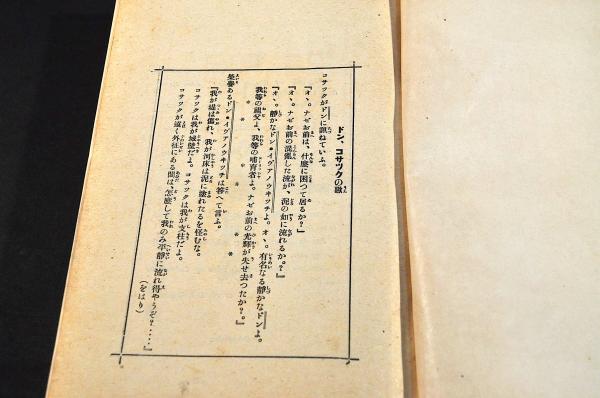 ドン、コサツクの歌
コサツクがドンに訊ねていふ。
『オヽ。ナゼお前は、什麼に困つて居るか？』
『オヽ。ナゼお前の混亂した流が、泥の如に流れるか。？』
『オヽ。靜かなドン・イヴアノウキツチよ。オヽ。有名なる靜かなドンよ。
我等の祖父よ、我等の哺育者よ。ナゼお前の光輝が失せ去つたか？。』
＊　＊　＊　＊　＊
榮譽あるドン・イヴアノウキツチは答へて言ふ。
『我が堤は崩れ、我が河床は泥に塗れたるを怪むな。
コサツクは我が城壁だよ。コサツクは我が支柱だよ。
コサツクが遠く外征にある間は、怎麼して我のみ平靜に流れ得やうぞ？‥‥』
（をはり）